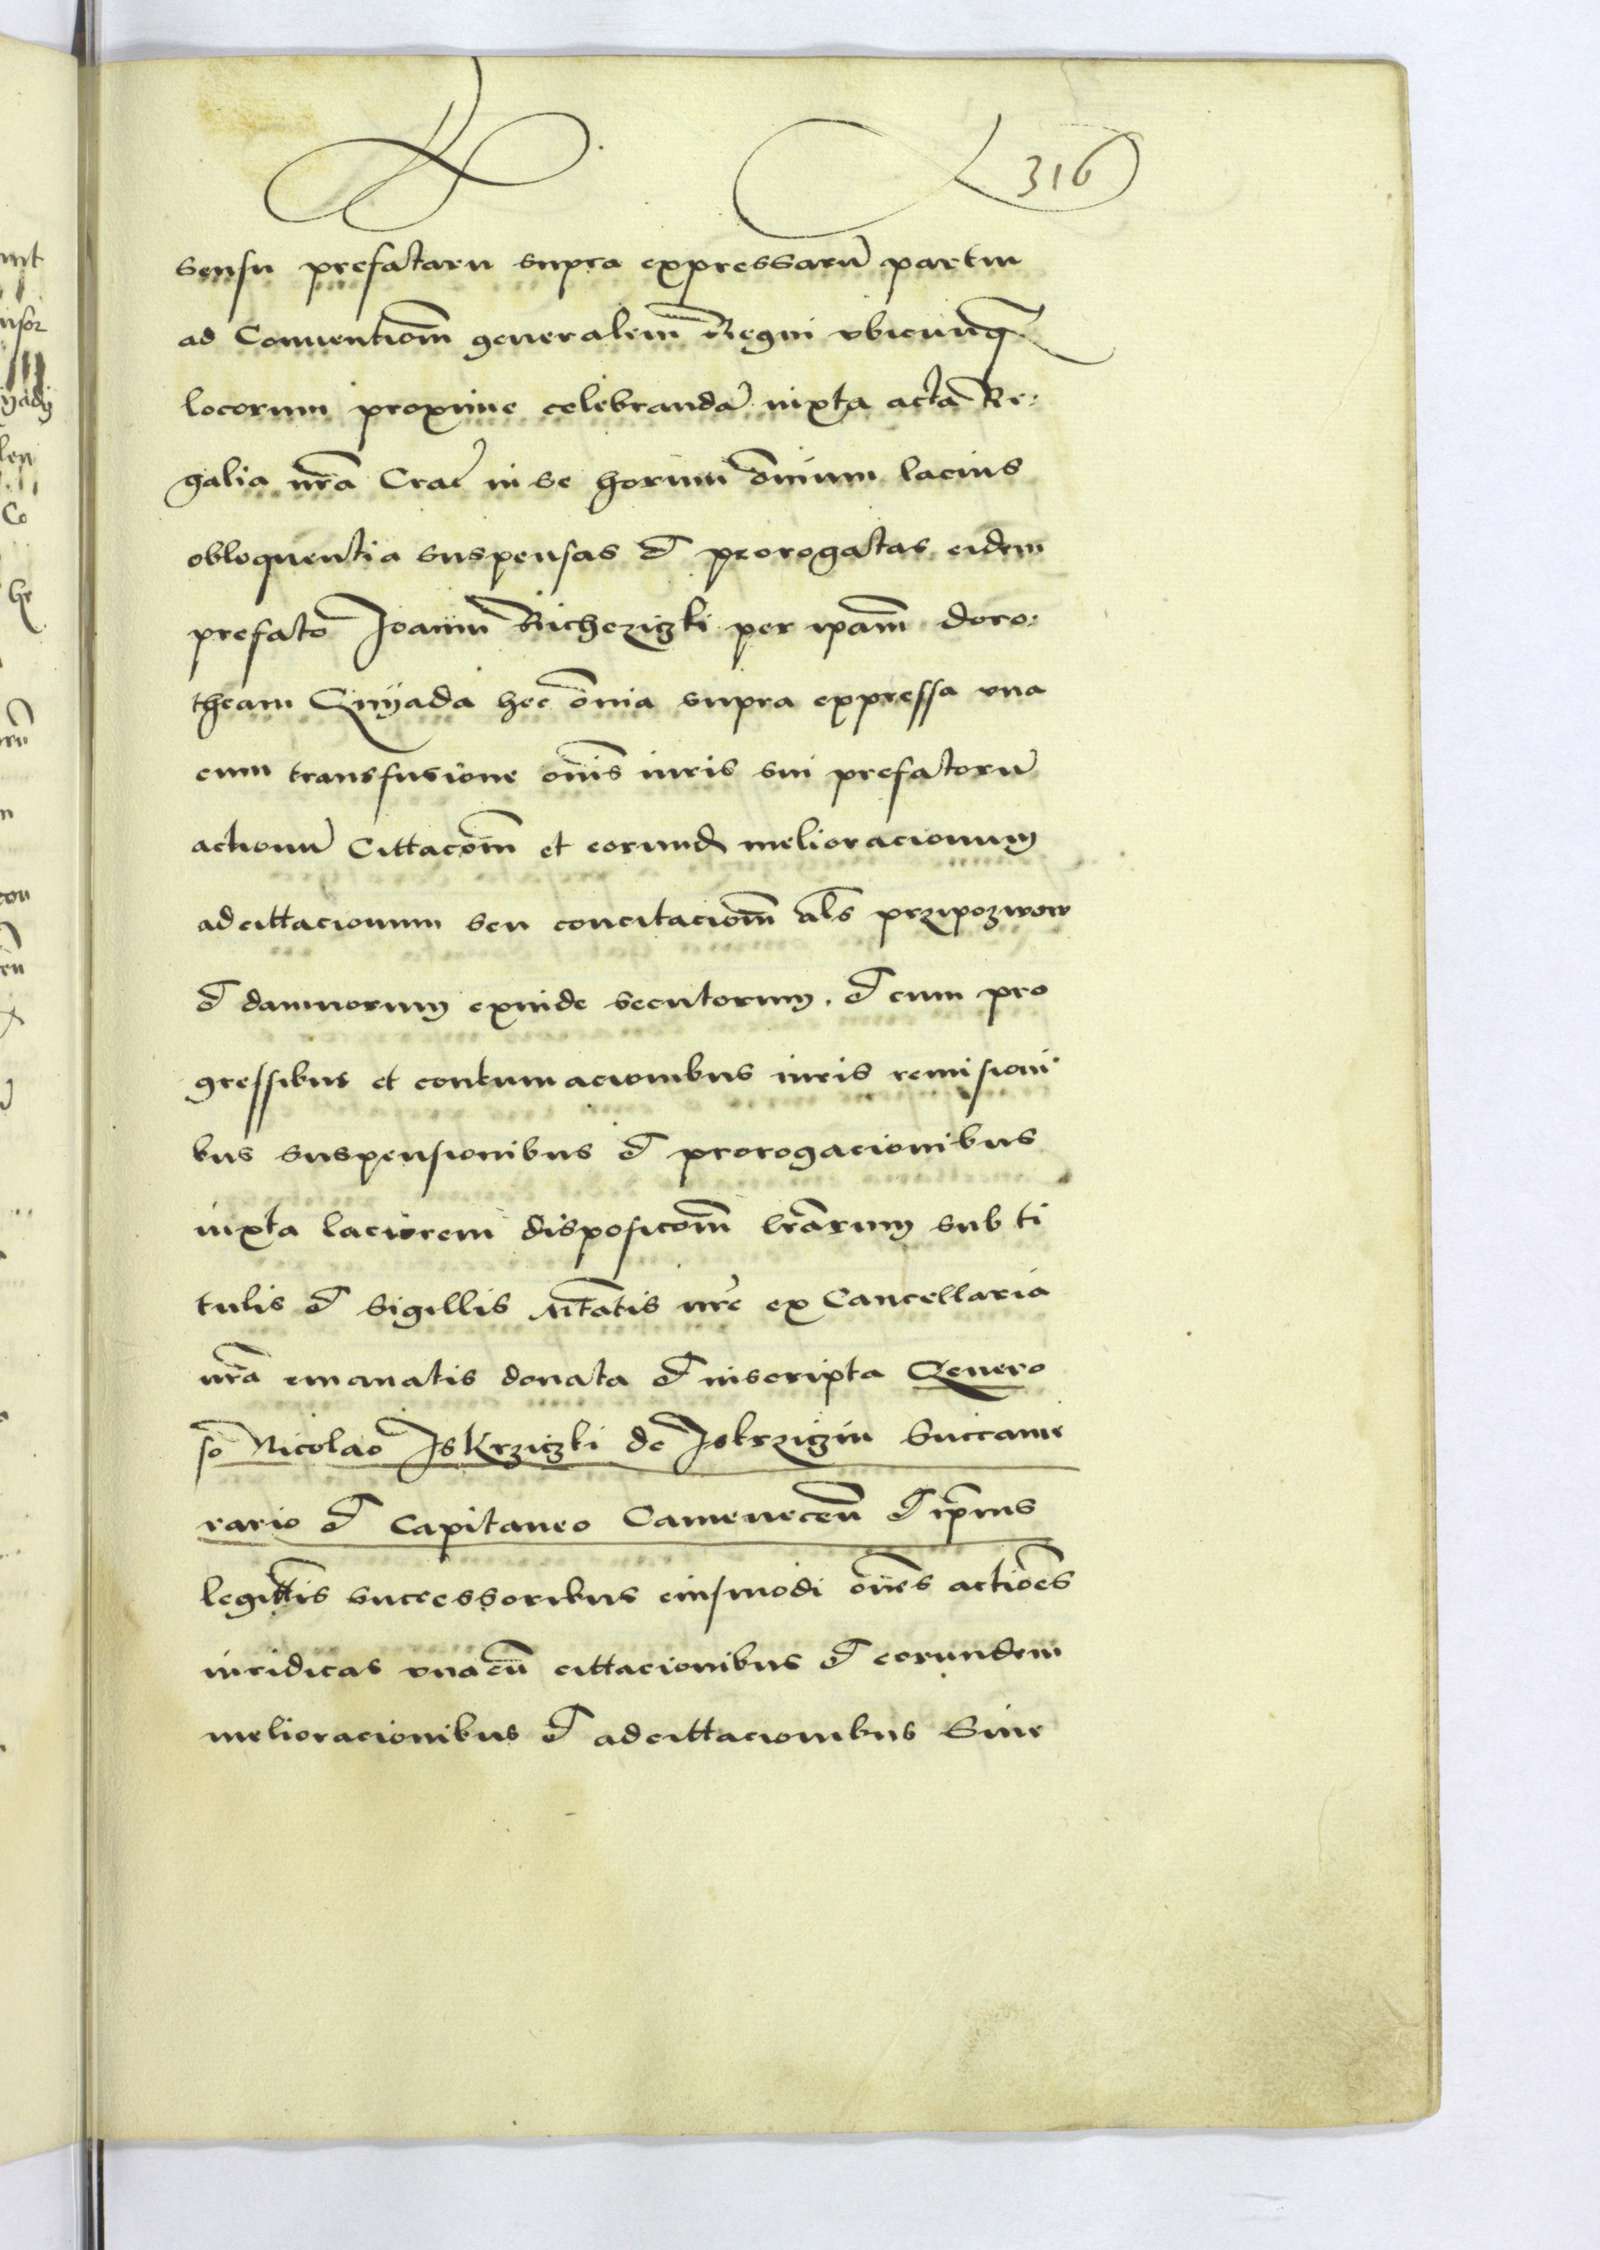 316
sensu prefataru supra expressaru partiu
ad Conuentiom generalem Regni vbicunq
locorum proxime celebranda iuxta acta Re:
galia nra Crac in se horum omium lacius
obloquentia suspensas et prorogatas eidem
prefato Joanni Bicherziczki per ipam doro:
theam Czyyada hec omia supra expressa vna
cum transfusione omis iuris sui prefatoru
actionu Cittacom et eorund melioracionum
adcittacionum seu concitaciom als przipozwow
et damnorum exinde secutorum. et cum pro
gressibus et contumacionibus iuris remisioni
bus suspensionibus et prorogacionibus
iuxta laciorem disposicom lrarum sub ti
tulis et sigillis Mtatis nre ex Cancellaria
nra emanatis donata et inscripta Genero
so Nicolao Iskrziczki de Iskrziczin Succame
rario et Capitaneo Camenecen et ipius
legittis successoribus eiusmodi omes actioes
iuridicas vnacu cittacionibus et eorundem
melioracionibus et adcittacionibus Siue